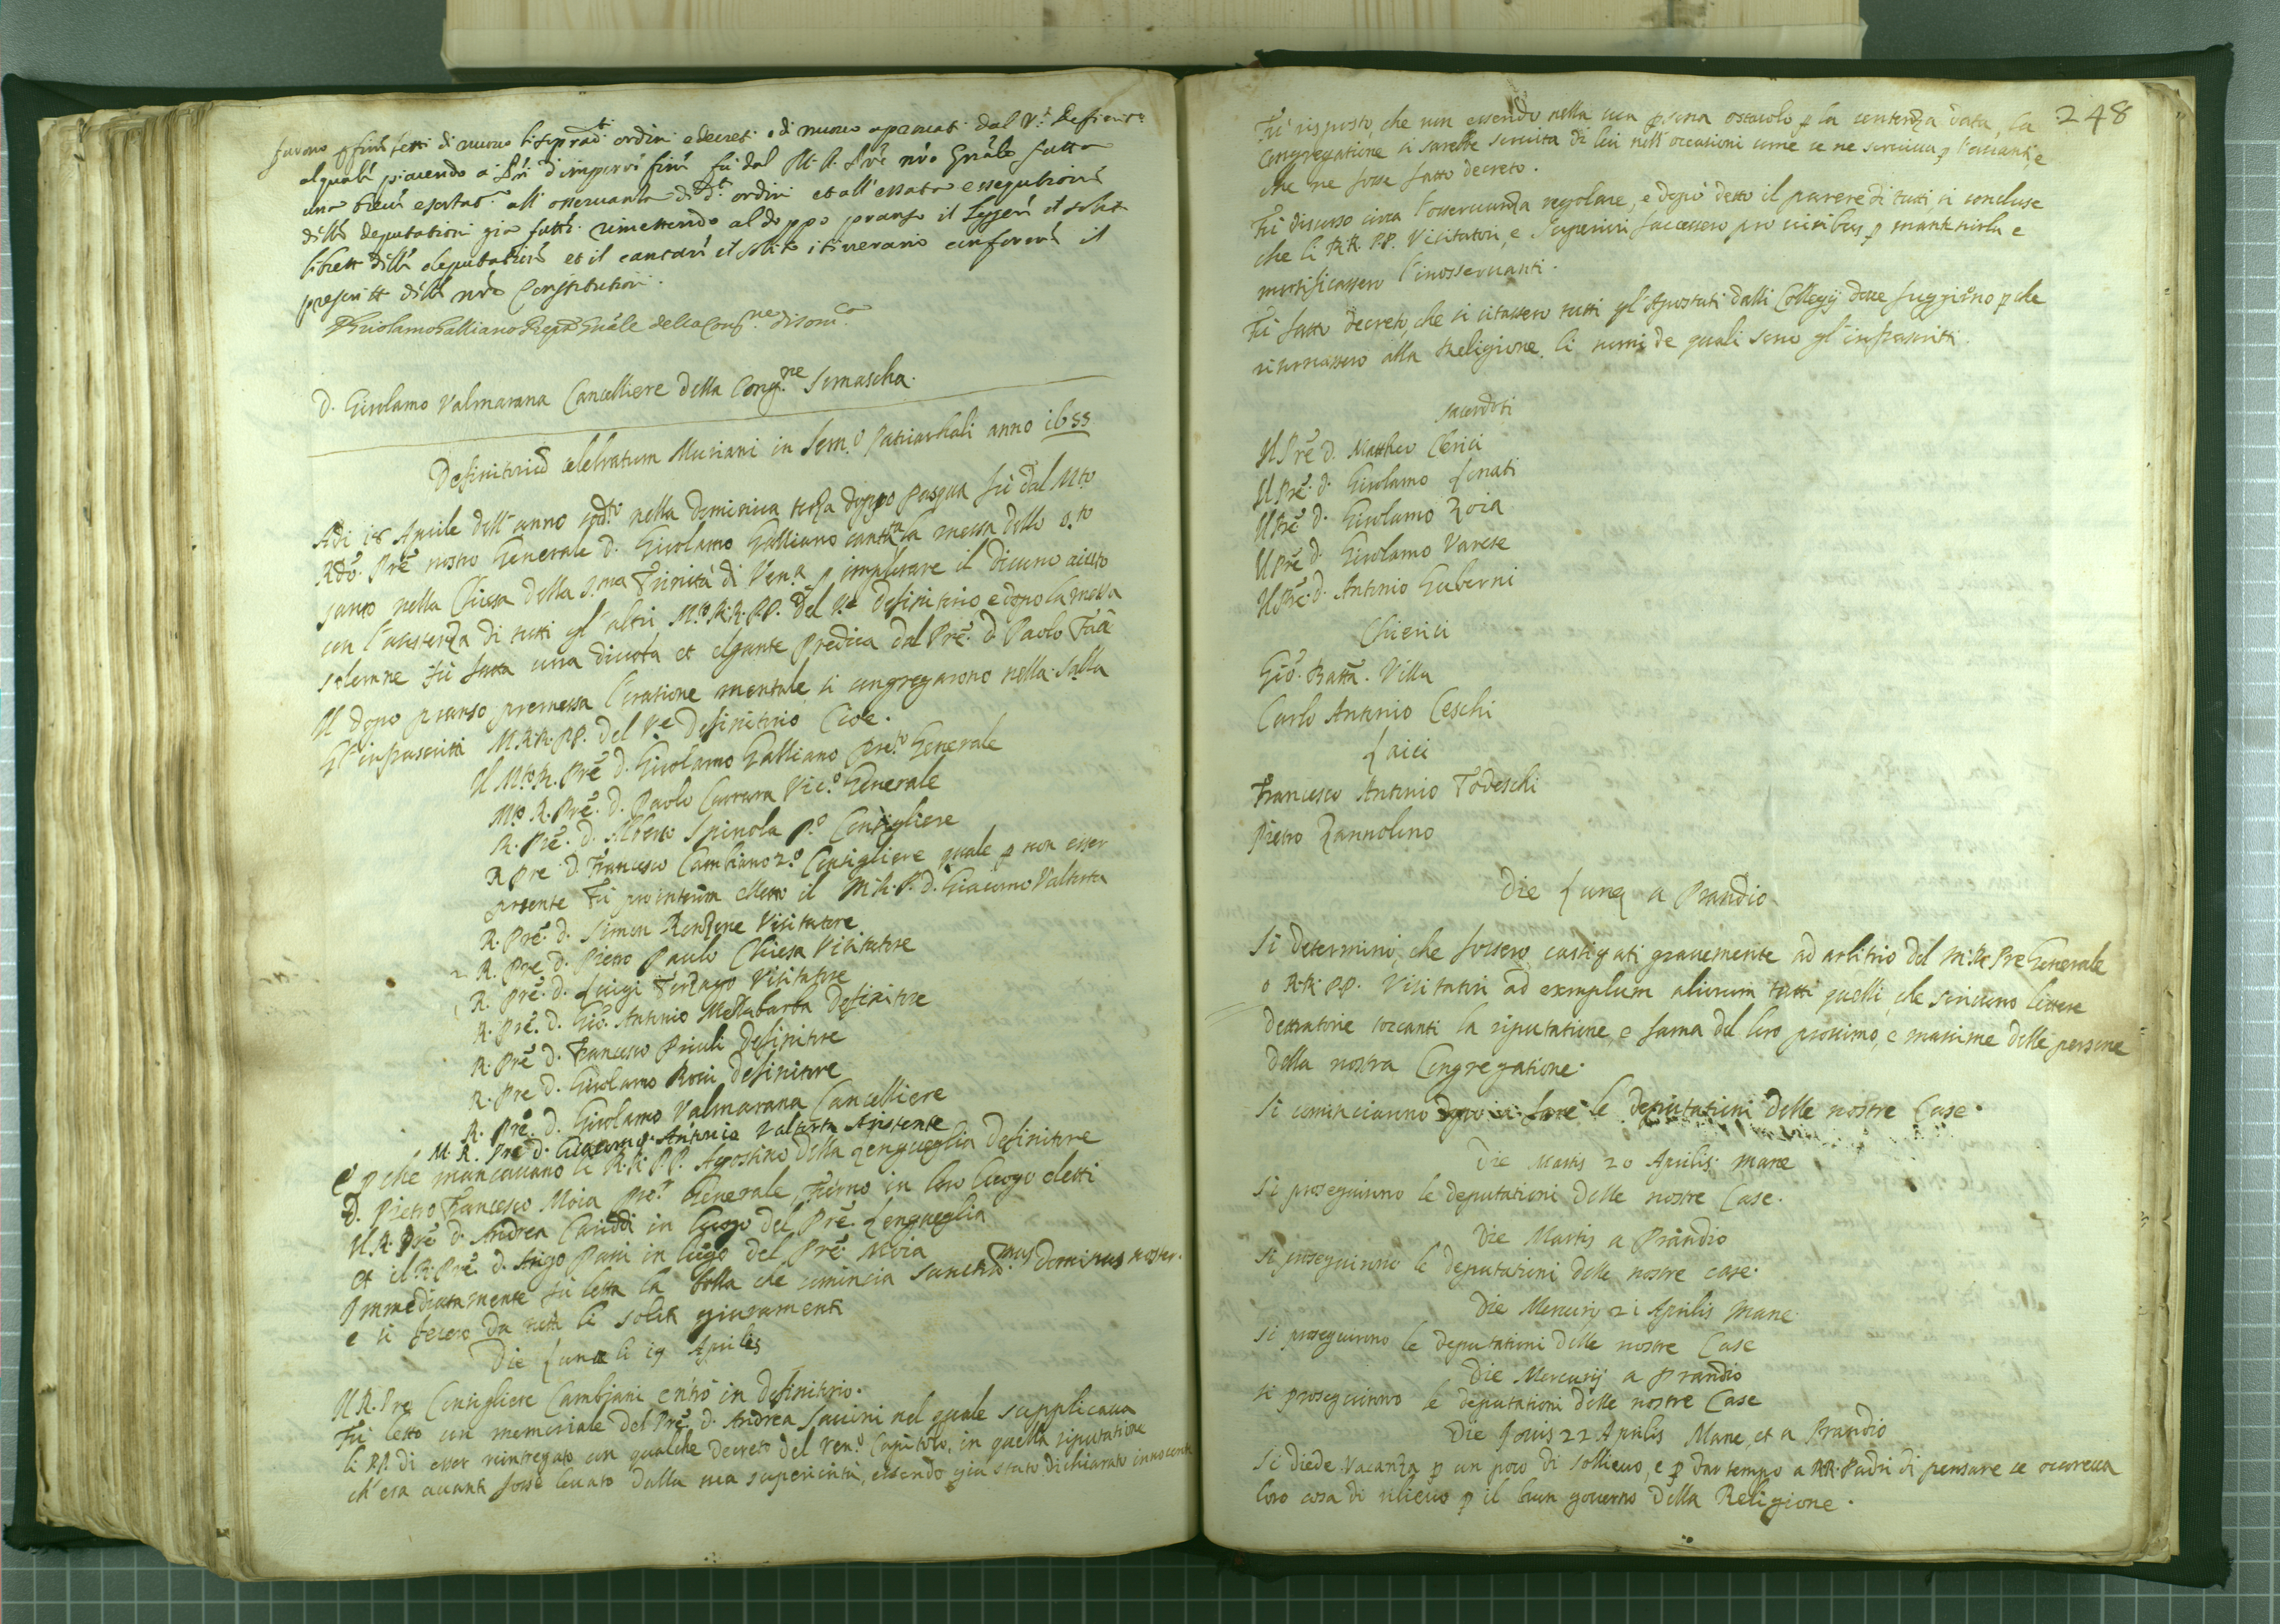 furono p fine letti di nuovo li sopradti ordini e decreti e di nuovo aprovati dal Vle Definito
al quale piacendo a Sri d'imporvi fine fù dal M. R. Pre nro Gñale fatta
una breve esortatne all' osservanza di dti ordini et all' essata essegutione
delle deputationi gia fatte. rimettendo al doppo pranso il leggere il solit
libretto delle deputationi et il cantare il solito itinerario conforme il
prescritto delle nre Constitutioni.
D Girolamo Galliano Prepto Gñale della Congne di Somca
D. Girolamo Valmarana Cancelliere della Congne Somascha.
Definitoriũ celebratum Muriani in Semo Patriarchali anno 1655
Adi 18 Aprile dell' anno sodto nella domenica terza doppo Pasqua fù dal Mto
Rdo Pre nostro Generale D. Girolamo Galliano cantata la messa dello S.to
santo nella Chiesa della S.ma Trinità di Vena p implorare il Divino aiuto
con l'assistenza di tutti gl' altri M.to R.R. P.P. del Ve Definitorio e dopo la messa
solenne fù fatta una divota et elegante Predica dal Pre D. Paolo Taà
Il dopo pranso premessa l'oratione mentale, si congregarono nella salla
gl' infrascritti M.R.R. P.P. del Ve Definitorio Cioè.
Il M.to R. Pre D. Girolamo Galliano Preto Generale
M.to R. Pre D. Paolo Carrara Vico Generale
R. Pre. D. Alberto Spinola po Consigliere
R Pre D. Francesco Cambiano 2o Consigliere quale p non esser
presente fù pro interim elletto il M.R.P. D. Giacomo Valtorta
R. Pre. D. Simon Rondone Visitatore
R. Pre D. Pietro Paulo Chiesa Visitatore
R. Pre. D. Luigi Terzago Visitatore
R. Pre. D. Gio. Antonio Mezzabarba Definitore
R. Pre D. Francesco Priuli Definitore
R. Pre D. Girolamo Rossi Definitore
R. Pre. D. Girolamo Valmarana Cancelliere
M. R. Pre D. Giacomo Antonio Valtorta Assistente
E p che mancavano li R.R. P.P. Agostino della Lengueglia Definitore
D. Pietro Francesco Moia Pror Generale, furno in loro luogo eletti
Il R. Pre D. Andrea Cariddi in luogo del Pre. Lengueglia
et il R. Pre. D. Arigo Pani in luogo del Pre Moia
Immediatamente fù letta la bolla che comincia Sanctissmus Dominus noster.
e si fecero da tutti li soliti giuramenti
Die Lunae li 19 Aprilis
Il R. Pre Consigliere Cambjani entrò in Definitorio.
Fù letto un memoriale del Pre D. Andrea Savini nel quale supplicava
li PP. di esser reintegrato con qualche decreto del Veno Capitolo, in quella riputatione
ch' era avanti fosse levato dalla sua superiorità, essendo già stato dichiarato innocente
248
Fù risposto, che non essendo nella sua psona ostacolo p la sentenza data, la
Congregatione si sarebbe servita di lui nell' occasioni come se ne serviva p l'avanti, e
che ne fosse fatto decreto.
Fù discorso circa l'osservanza regolare, e dopò detto il parere di tutti, si concluse
che li R.R. P.P. Visitatori, e Superiori facessero pro viribus p mantenirla e
mortificassero l'inosservanti.
Fù fatto decreto, che si citassero tutti gl' Apostati dalli Collegij dove fuggirno p che
ritornassero alla Religione, li nomi de quali sono gl' infrascritti.
sacerdoti
Il Pre D. Mattheo Clerici
Il Pre. D. Girolamo Lonati
Il Pre D. Girolamo Zoia
Il Pre D. Girolamo Varese
Il Pre. D. Antonio Guberni
Chierici
Gio. Batta. Villa
Carlo Antonio Ceschi
Laici
Francesco Antonio Todeschi
Pietro Zannolino
Die Lunae a Prandio
Si determinò, che fossero castigati gravemente ad arbitrio del M. R. Pre Generale
o R.R. P.P. Visitatori ad exemplum aliorum tutti quelli, che scrivono lettere
detratorie toccanti la riputatione, e fama del loro prossimo, e massime delle persone
della nostra Congregatione.
Si cominciarno dopo a fare le deputationi delle nostre Case.
Die Martis 20 Aprilis mane
Si proseguirno le deputationi delle nostre Case.
Die Martis a Prandio
Si proseguirno le deputationi delle nostre case.
Die Mercurij 21 Aprilis Mane
Si proseguirono le deputationi delle nostre Case
Die Mercurij a Prandio
si proseguirono le deputationi delle nostre Case
Die Jovis 22 Aprilis Mane, et a Prandio
Si diede vacanza p un poco di sollievo, e p dar tempo a RR. Padri di pensare se occoreva
loro cosa di rilievo p il buon governo della Religione.